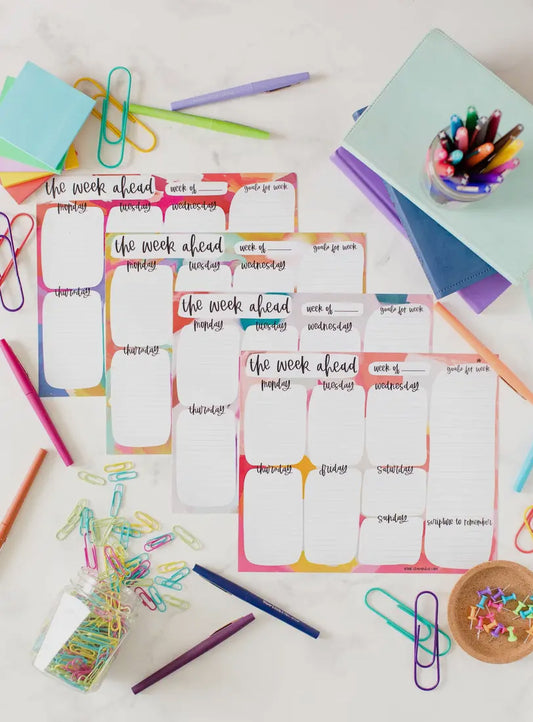 the week ahead
week of
goals for week
monday
tuesday
wednesday
thursday
the week ahead
week of
goals for week
monday
tuesday
wednesday
thursday
the week ahead
week of
goals for week
monday
tuesday
wednesday
thursday
the week ahead
week of
goals for week
monday
tuesday
wednesday
thursday
friday
Saturday
Sunday
scripture to remember